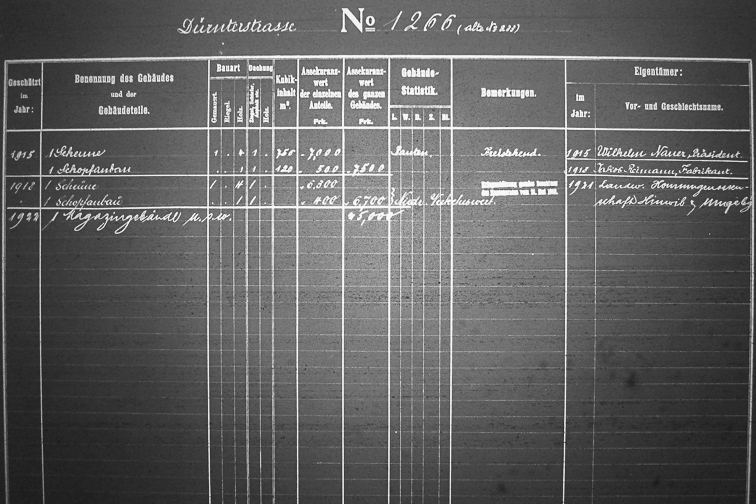 Dürnterstrasse No 1266 (alte No 288)
Geschätzt im Jahr: Benennung des Gebäudes und der Gebäudeteile. Bauart Dachung Kubikinhalt m³. Assekuranzwert der einzelnen Anteile. Frk. Assekuranzwert des ganzen Gebäudes. Frk. Gebäude-Statistik. Bemerkungen. Eigentümer:
Gemauert. Riegel. Holz. Holz. L. W. im Jahr: Vor- und Geschlechtsname.
1915 1 Scheune 1 . 4 1 . 755 . 7,000 Bauten. Freistehend. 1915 Wilhelm Naner, Präsident.
. 1 Schopfanbau . . 1 1 . 120 . 500 . 7,500 1918 Jakob Reimann, Fabrikant.
1918 1 Scheune 1 . 4 1 . . 6,300 1921 Landw. Konsumgenossen-
. 1 Schopfanbau . . 1 1 . 400 . 6,700 Niedr. Verkehrswert. schaft Hinwil & Umgebg
1922 1 Magazingebäude u.s.w. 45,000